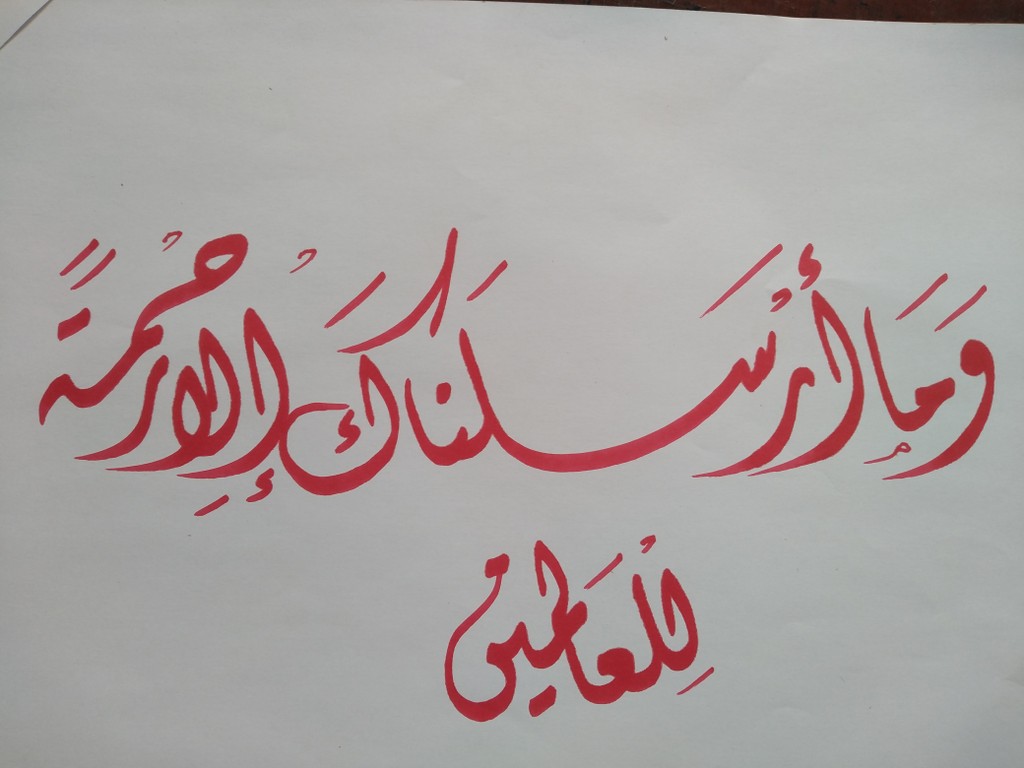 وَمَا أَرْسَلَنَاكَ إِلاَّ رْحْمَةً
لِلْعَالمين